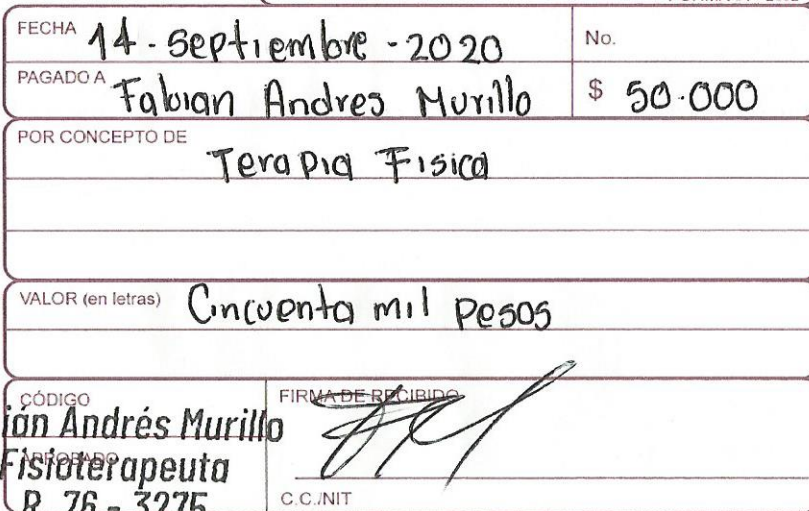 FECHA 14 - Septiembre - 2020 No.
PAGADO A Fabian Andres Murillo $ 50.000
POR CONCEPTO DE Terapia Fisica
VALOR (en letras) Cincuenta mil pesos
CÓDIGO FIRMA DE RECIBIDO
ián Andrés Murillo
APROBADO
Fisioterapeuta
R. 76 - 3275
C.C./NIT